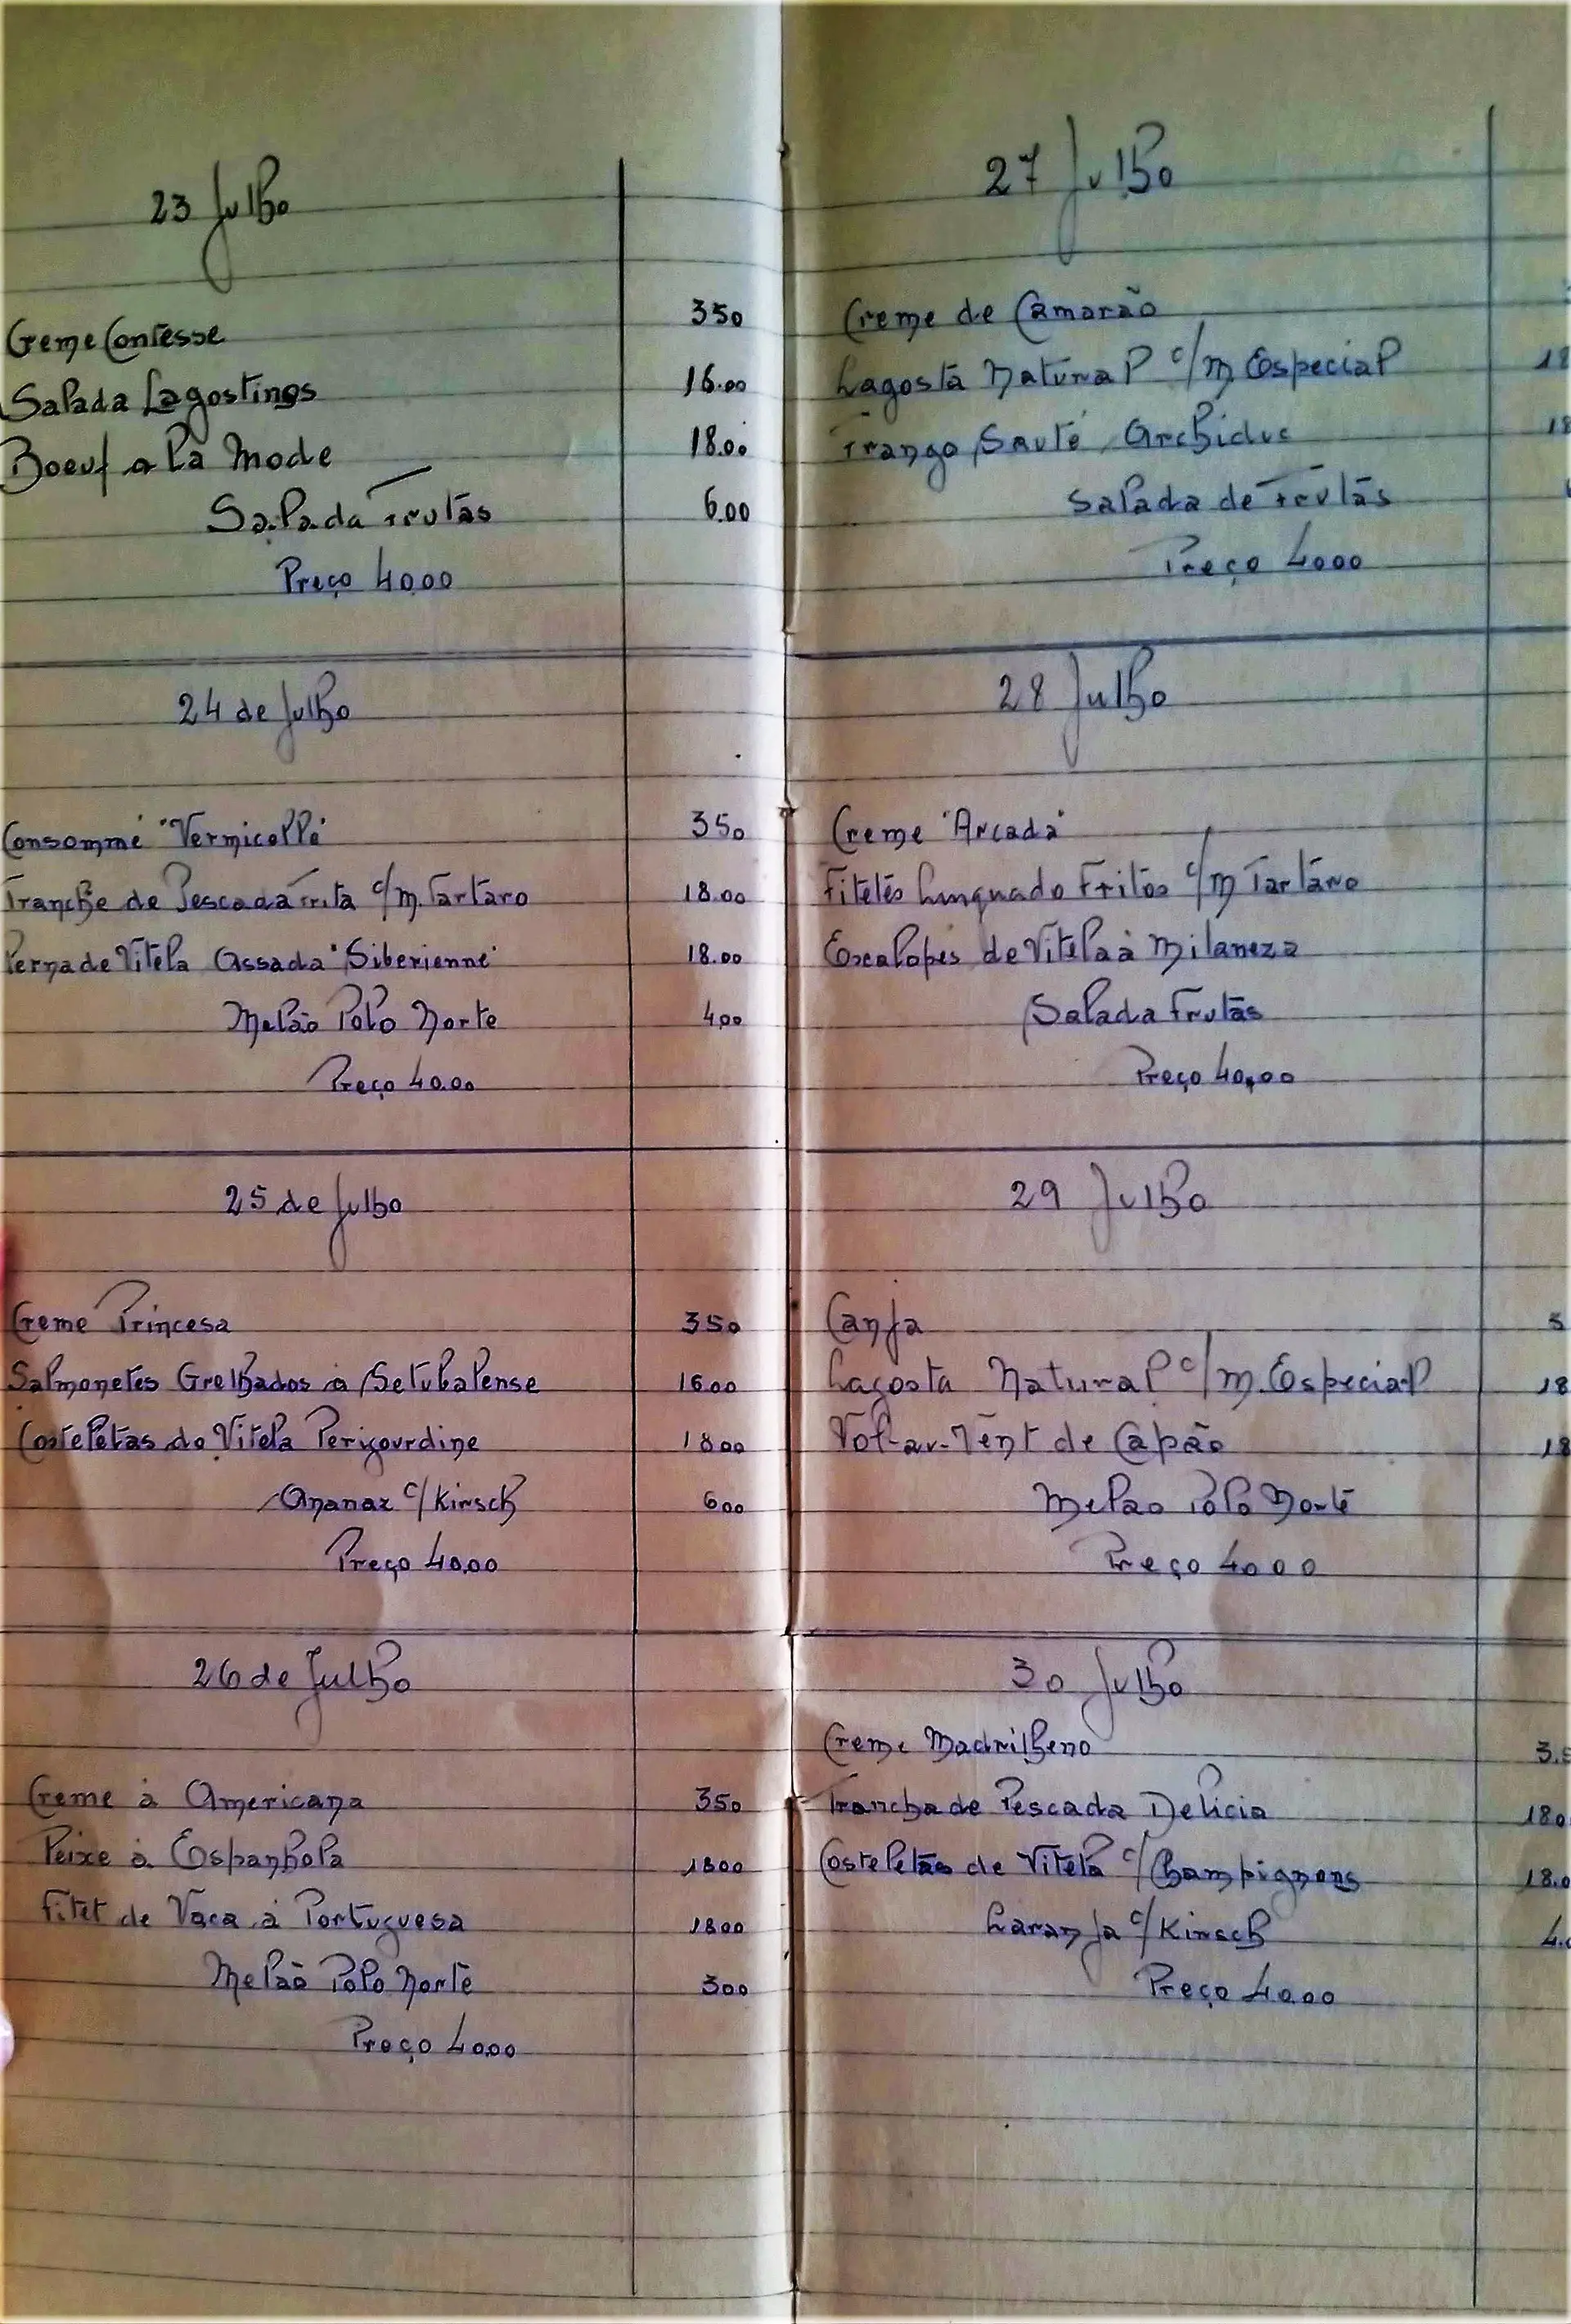 23 Julho
Creme Contesse 350
Salada Lagostinos 16.00
Boeuf a la Mode 18.00
Salada Frutas 6.00
Preço 40.00
24 de Julho
Consommé "Vermicelle" 350
Tranche de Pescada Frita c/ m. Tartaro 18.00
Perna de Vitela Assada "Siberienne" 18.00
Melão Polo Norte 400
Preço 40.00
25 de Julho
Creme Princesa 350
Salmonetes Grelhados à Setubalense 1600
Costeletas de Vitela Perigourdine 1800
Ananaz c/ Kirsch 600
Preço 40.00
26 de Julho
Creme à Americana 350
Peixe à Espanhola 1800
Filet de Vaca à Portuguesa 1800
Melão Polo Norte 300
Preço 40.00
27 Julho
Creme de Camarão
Lagosta Natural c/ m Especial 18
Frango Sauté Archiduc 18
Salada de Frutas
Preço 4000
28 Julho
Creme "Arcada"
Filetes Linguado Fritos c/ m Tartaro
Escalopes de Vitela à Milaneza
Salada Frutas
Preço 40,00
29 Julho
Canja 3
Lagosta Natural c/ m. Especial 18
Vol-au-Vent de Capão 18
Melão Polo Norte
Preço 4000
30 Julho
Creme Madrilheno 3.5
Trancha de Pescada Delicia 180
Costeletas de Vitela c/ Champignons 18.0
Laranja c/ Kirsch 4.0
Preço 40.00